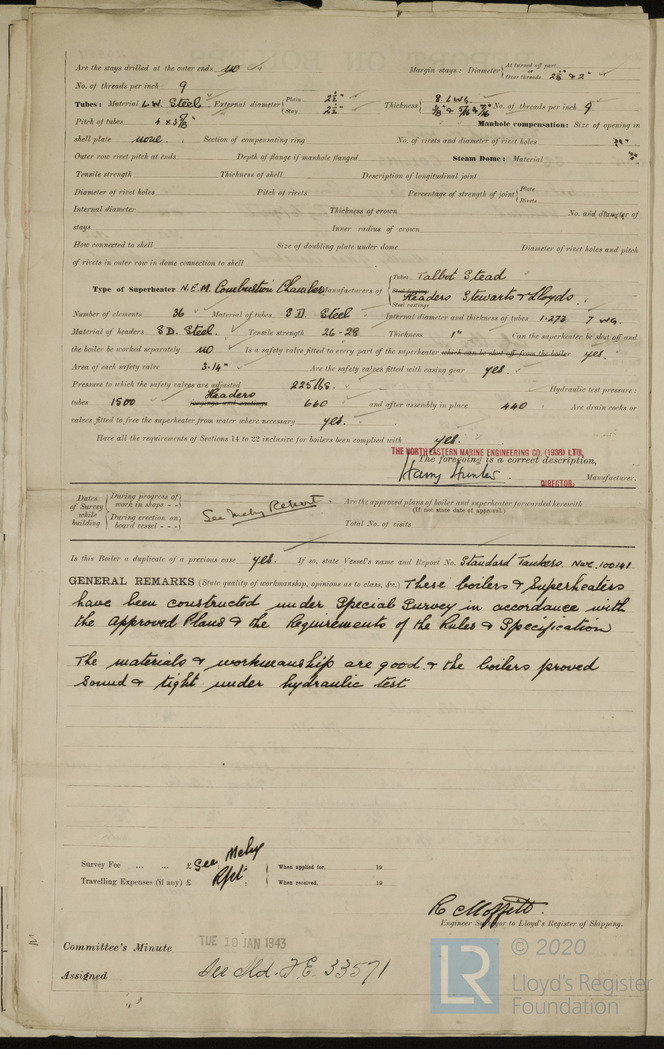 Are the stays drilled at the outer ends no Margin stays: Diameter { At turned off part or Over threads 2⅛" & 2"
No. of threads per inch 9
Tubes: Material L.W. Steel External diameter { Plain 2½" Stay 2½" Thickness { 8 L.W.G. No. of threads per inch 9
Pitch of tubes Manhole compensation: Size of opening in
shell plate none. Section of compensating ring No. of rivets and diameter of rivet holes
Outer row rivet pitch at ends Depth of flange if manhole flanged Steam Dome: Material
Tensile strength Thickness of shell Description of longitudinal joint
Diameter of rivet holes Pitch of rivets Percentage of strength of joint { Plate Rivets
Internal diameter Thickness of crown No. and diameter of
stays Inner radius of crown
How connected to shell Size of doubling plate under dome Diameter of rivet holes and pitch
of rivets in outer row in dome connection to shell
Type of Superheater N.E.M. Combustion Chamber Manufacturers of { Tubes Talbot Stead
Steel forgings Headers Stewarts & Lloyds
Steel castings
Number of elements 36 Material of tubes S.D. Steel Internal diameter and thickness of tubes 7 W.G.
Material of headers S.D. Steel. Tensile strength 26-28 Thickness 1" Can the superheater be shut off and
the boiler be worked separately no Is a safety valve fitted to every part of the superheater which can be shut off from the boiler yes.
Area of each safety valve 3.14" Are the safety valves fitted with easing gear yes.
Pressure to which the safety valves are adjusted 225 lbs. Hydraulic test pressure:
tubes 1500 forgings and castings Headers 660 and after assembly in place 440 Are drain cocks or
valves fitted to free the superheater from water where necessary yes.
Have all the requirements of Sections 14 to 22 inclusive for boilers been complied with yes.
THE NORTH EASTERN MARINE ENGINEERING CO. (1938) LTD.
The foregoing is a correct description,
Harry Hunter. DIRECTOR. Manufacturer.
Dates of Survey while building { During progress of work in shops - - - During erection on board vessel - - - } See Mchy Report. Are the approved plans of boiler and superheater forwarded herewith
(If not state date of approval.)
Total No. of visits
Is this Boiler a duplicate of a previous case yes. If so, state Vessel's name and Report No. Standard Tankers. Nwc. 100141
GENERAL REMARKS (State quality of workmanship, opinions as to class, &c.) These boilers & Superheaters
have been constructed under Special Survey in accordance with
the approved Plans & the Requirements of the Rules & Specification
The materials & workmanship are good. & the boilers proved
sound & tight under hydraulic test
Survey Fee ... ... £ See Mchy When applied for, 19
Travelling Expenses (if any) £ Rpt. When received, 19
R C Moffett.
Engineer Surveyor to Lloyd's Register of Shipping.
Committee's Minute TUE 19 JAN 1943
Assigned See Nd. F.E. 33571
LR © 2020
Lloyd's Register
Foundation